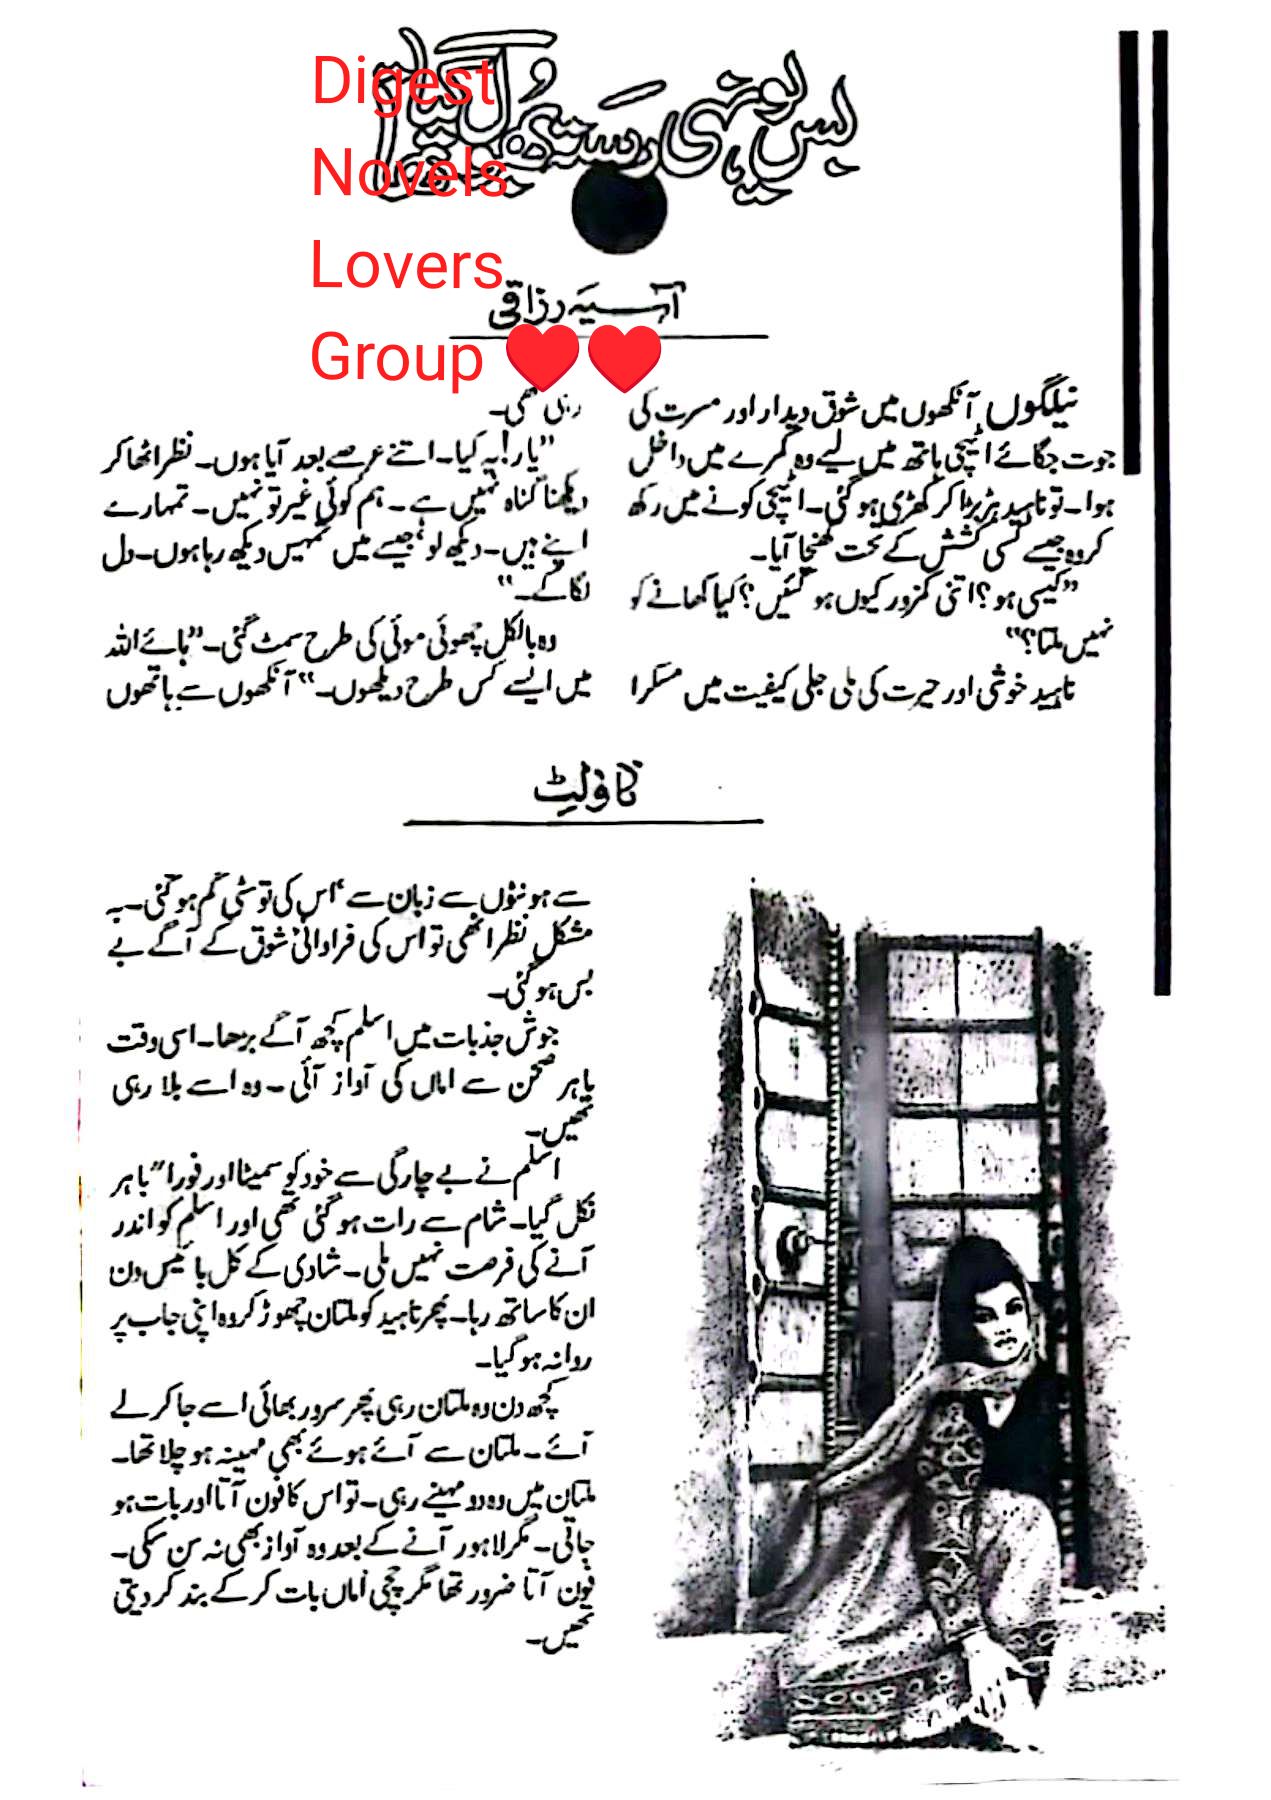 بس یونہی رستہ بھول گیا تھا
Digest
Novels
Lovers
Group ❤️❤️
آسیہ رزاقی
نیلگوں آنکھوں میں شوق دیدار اور مسرت کی
جوت جگائے اٹیچی ہاتھ میں لیے وہ کمرے میں داخل
ہوا۔ تو ناہید ہڑبڑا کر کھڑی ہو گئی۔ اٹیچی کونے میں رکھ
کر وہ جیسے کسی کشش کے تحت کھنچا آیا۔
”کیسی ہو؟ اتنی کمزور کیوں ہو گئیں؟ کیا کھانے کو
نہیں ملتا؟“
ناہید خوشی اور حیرت کی ملی جلی کیفیت میں مسکرا
رہی تھی۔
”یار! یہ کیا۔ اتنے عرصے بعد آیا ہوں۔ نظر اٹھا کر
دیکھنا گناہ نہیں ہے۔ ہم کوئی غیر تو نہیں۔ تمہارے
اپنے ہیں۔ دیکھ لو‘ جیسے میں تمہیں دیکھ رہا ہوں۔ دل
لگا کے۔“
وہ بالکل چھوئی موئی کی طرح سمٹ گئی۔ ”ہائے اللہ
میں ایسے کس طرح دیکھوں۔“ آنکھوں سے ہاتھوں
ناولٹ
سے ہونٹوں سے زبان سے‘ اس کی تو سٹی گم ہو گئی۔ بہ
مشکل نظر اٹھی تو اس کی فراوانی شوق کے آگے بے
بس ہو گئی۔
جوش جذبات میں اسلم کچھ آگے بڑھا۔ اسی وقت
باہر صحن سے اماں کی آواز آئی۔ وہ اسے بلا رہی
تھیں۔
اسلم نے بے چارگی سے خود کو سمیٹا اور فوراً باہر
نکل گیا۔ شام سے رات ہو گئی تھی اور اسلم کو اندر
آنے کی فرصت نہیں ملی۔ شادی کے کل بائیس دن
ان کا ساتھ رہا۔ پھر ناہید کو ملتان چھوڑ کر وہ اپنی جاب پر
روانہ ہو گیا۔
کچھ دن وہ ملتان رہی پھر سرور بھائی اسے جا کر لے
آئے۔ ملتان سے آئے ہوئے بھی مہینہ ہو چلا تھا۔
ملتان میں وہ دو مہینے رہی۔ تو اس کا فون آتا اور بات ہو
جاتی۔ مگر لاہور آنے کے بعد وہ آواز بھی نہ سن سکی۔
فون آتا ضرور تھا مگر چچی اماں بات کر کے بند کر دیتی
تھیں۔